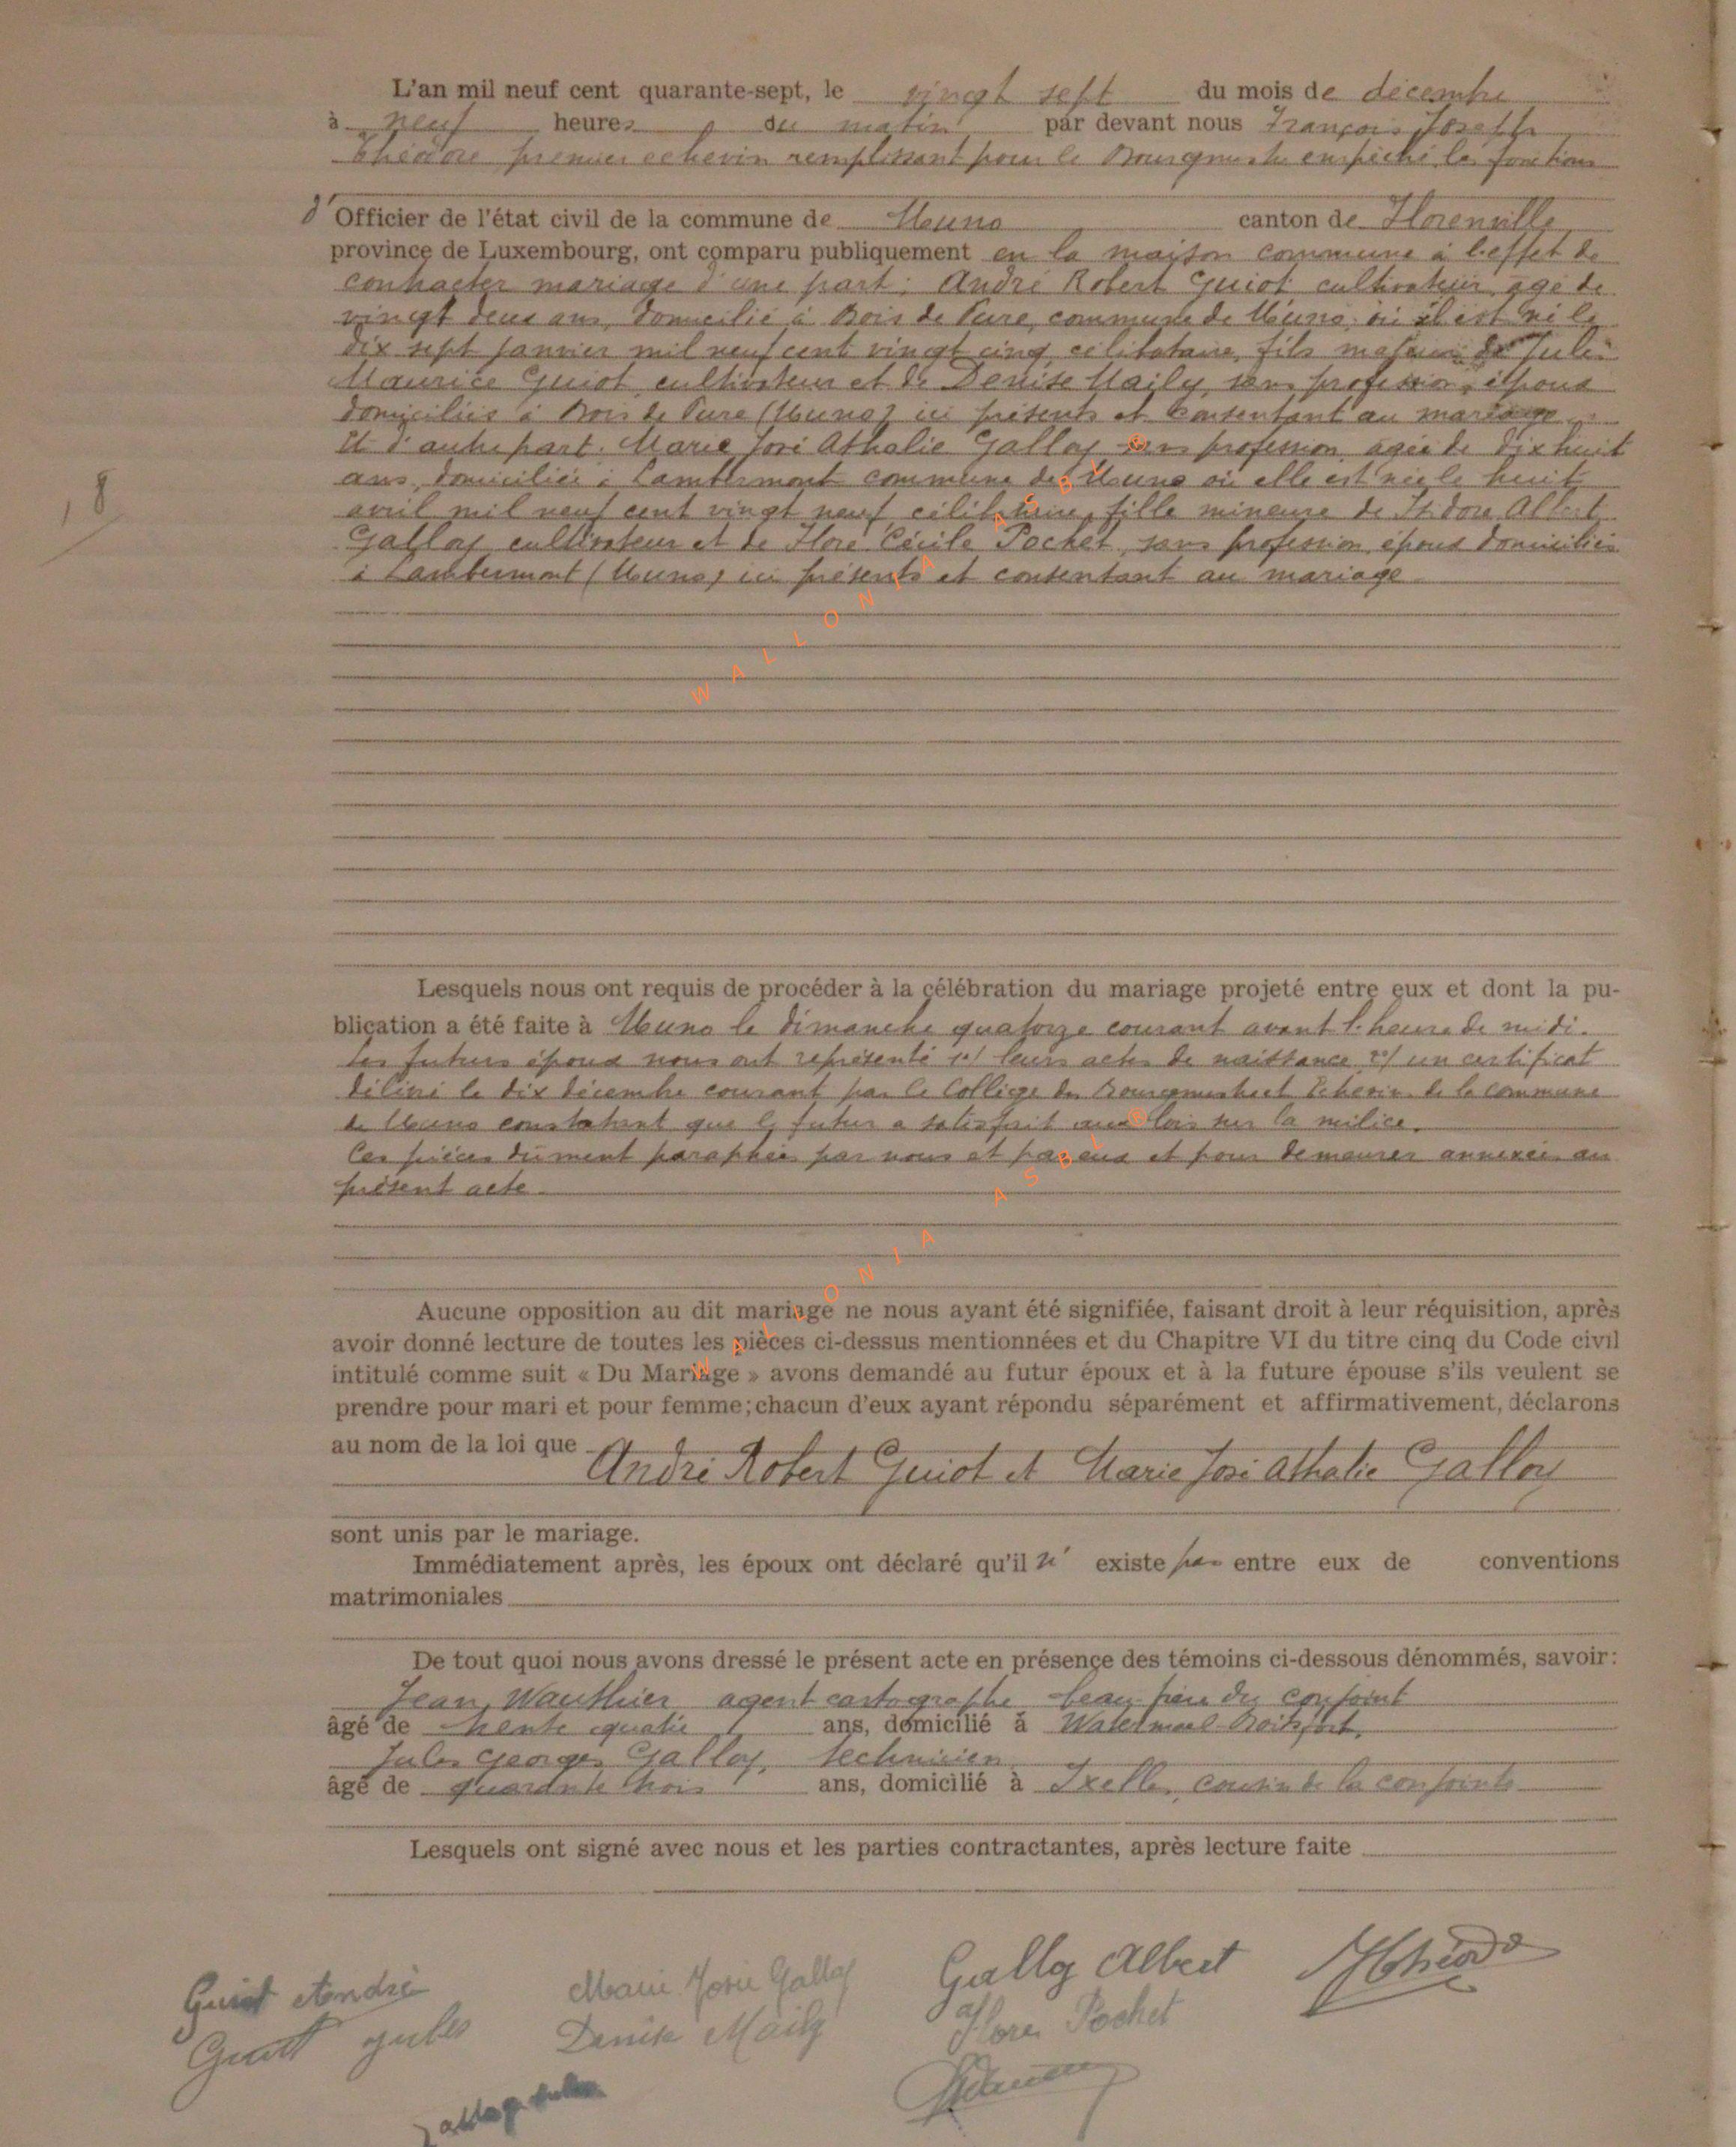 L'an mil neuf cent quarante-sept, le vingt sept du mois de décembre
à neuf heures du matin par devant nous François Joseph
Théodore premier echevin remplissant pour le Bourgmestre empêché les fonctions
d'Officier de l'état civil de la commune de Muno canton de Florenville
province de Luxembourg, ont comparu publiquement en la maison commune à l'effet de
contracter mariage d'une part: André Robert Guiot cultivateur agé de
vingt deux ans, domicilié à Bois de Pure, commune de Muno, où il est né le
dix sept janvier mil neuf cent vingt cinq célibataire, fils majeur de Jules
Maurice Guiot cultivateur et de Denise Maily, sans profession, époux
domiciliés à Bois de Pure (Muno) ici présents et consentant au mariage
Et d'autre part. Marie José Athalie Galloy sans profession agée de dix huit
ans, domiciliée à Lambermont commune de Muno où elle est née le huit
avril mil neuf cent vingt neuf, célibataire, fille mineure de Isidore Albert
Galloy cultivateur et de Flore Cécile Pochet, sans profession, époux domiciliés
à Lambermont (Muno) ici présents et consentant au mariage
18
WALLONIA ASBL ®
Lesquels nous ont requis de procéder à la célébration du mariage projeté entre eux et dont la pu-
blication a été faite à Muno le dimanche quatorze courant avant l'heure de midi.
Les futurs époux nous ont représenté 1°/ leurs actes de naissance 2°/ un certificat
délivré le dix décembre courant par le Collège des Bourgmestre et Echevins de la commune
de Muno constatant que le futur a satisfait aux lois sur la milice.
Ces pièces dûment paraphées par nous et par eux et pour demeurer annexées au
présent acte
WALLONIA ASBL ®
Aucune opposition au dit mariage ne nous ayant été signifiée, faisant droit à leur réquisition, après
avoir donné lecture de toutes les pièces ci-dessus mentionnées et du Chapitre VI du titre cinq du Code civil
intitulé comme suit « Du Mariage » avons demandé au futur époux et à la future épouse s'ils veulent se
prendre pour mari et pour femme; chacun d'eux ayant répondu séparément et affirmativement, déclarons
au nom de la loi que André Robert Guiot et Marie José Athalie Galloy
sont unis par le mariage.
Immédiatement après, les époux ont déclaré qu'il n' existe pas entre eux de conventions
matrimoniales
De tout quoi nous avons dressé le présent acte en présence des témoins ci-dessous dénommés, savoir:
Jean, Wauthier agent cartographe beau frère du conjoint
âgé de trente quatre ans, domicilié à Watermael-Boitsfort,
Jules Georges Galloy, technicien
âgé de quarante trois ans, domicilié à Ixelles, cousin de la conjointe
Lesquels ont signé avec nous et les parties contractantes, après lecture faite
Guiot André Marie Josée Galloy Galloy Albert
Guiot Jules Denise Maily Flore Pochet
Galloy Jules